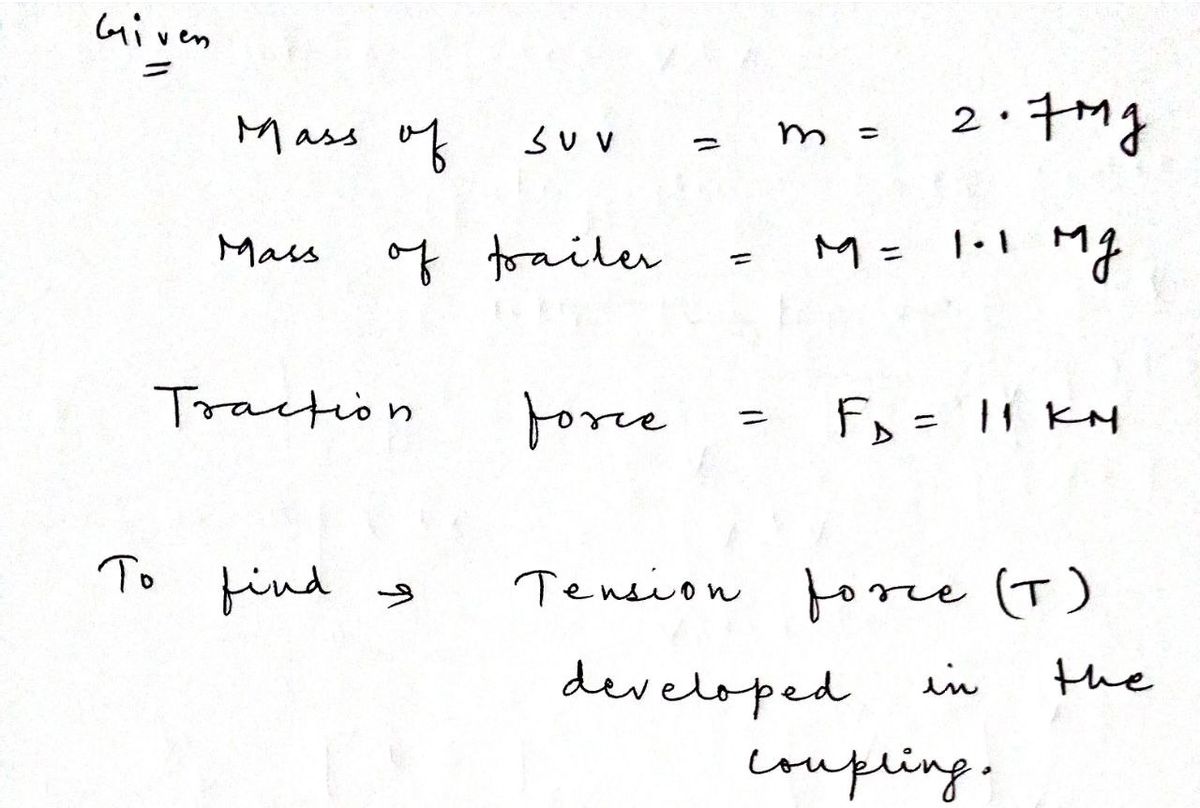 Given
Mass of SUV = m = 2.7Mg
Mass of trailer = M = 1.1 Mg
Traction force = F_D = 11 KN
To find → Tension force (T)
developed in the
coupling.